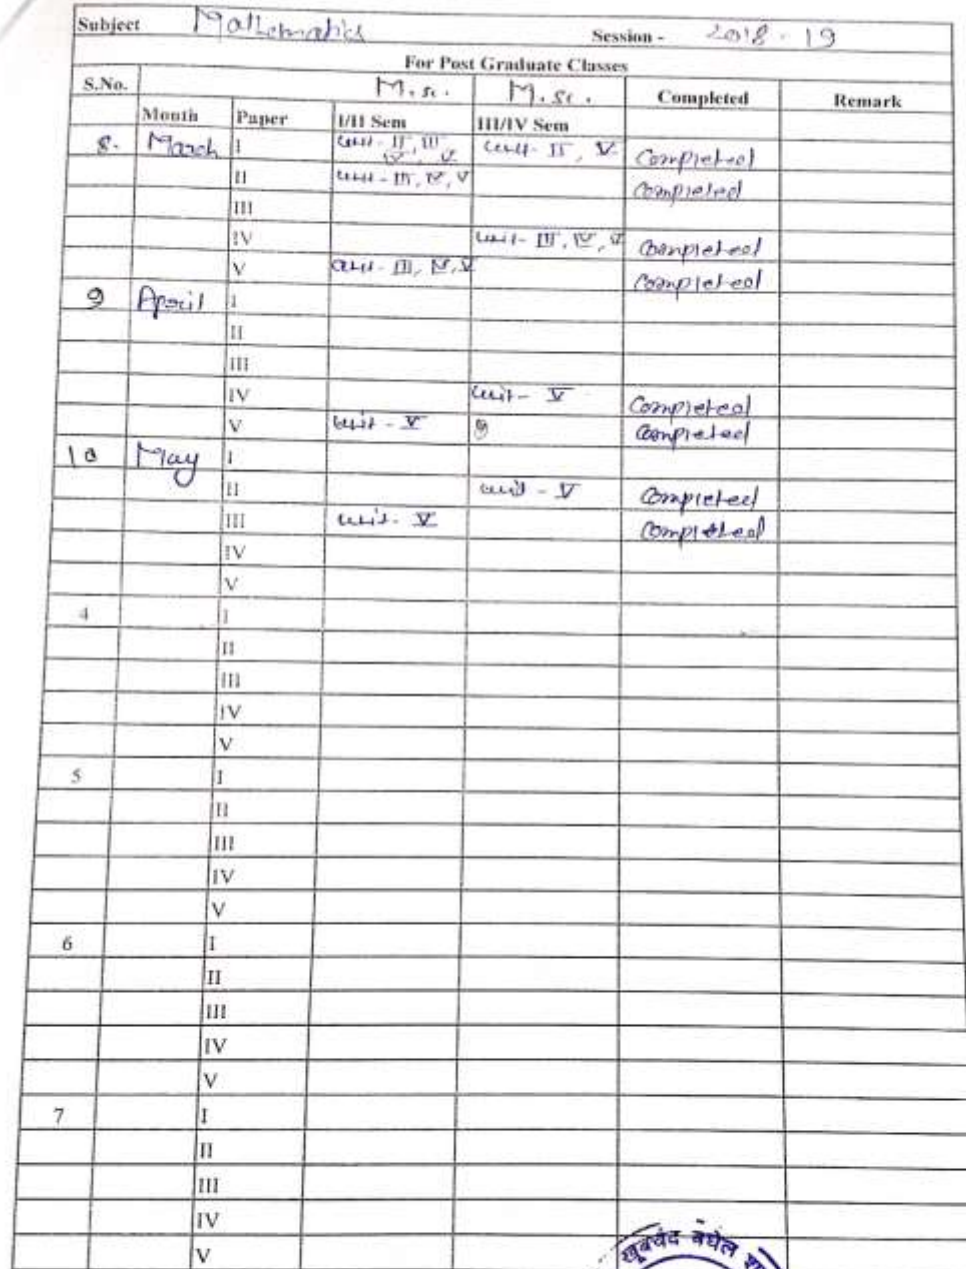 Subject Mathematics Session - 2018 - 19
For Post Graduate Classes
S.No. M.sc. M.sc. Completed Remark
Month Paper I/II Sem III/IV Sem
8. March I unit - II, III, IV, V unit - II, V Completed
II unit - III, IV, V Completed
III
IV unit - III, IV, V Completed
V unit - III, IV, V Completed
9 April I
II
III
IV unit - V Completed
V unit - V Completed
10 May I
II unit - V Completed
III unit - V Completed
IV
V
4 I
II
III
IV
V
5 I
II
III
IV
V
6 I
II
III
IV
V
7 I
II
III
IV
V
खूबचंद बघेल